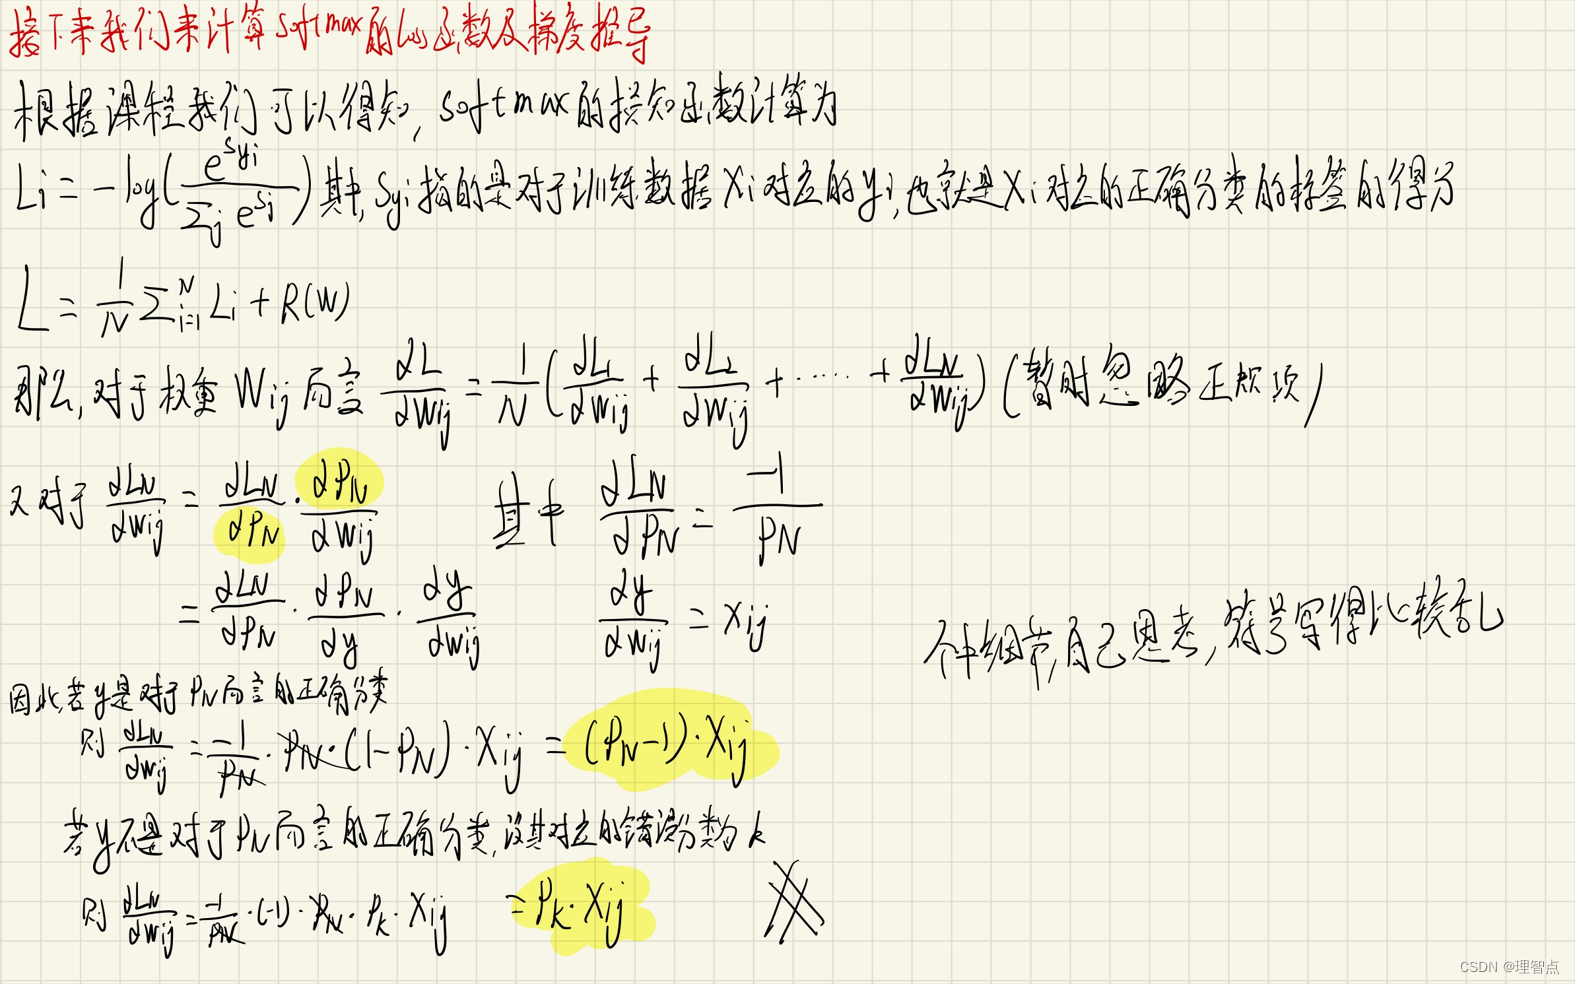 接下来我们来计算softmax的Loss函数及梯度推导
根据课程我们可以得知, softmax的损失函数计算为
Li = -log(e^{Syi} / Σj e^{Sj}) 其中, Syi指的是对于训练数据Xi对应的yi, 也就是Xi对应的正确分类的标签的得分
L = 1/N Σ_{i=1}^{N} Li + R(W)
那么, 对于权重 Wij 而言 dL/dWij = 1/N (dL1/dWij + dL2/dWij + ······ + dLN/dWij) (暂时忽略正则项)
又对于 dLN/dWij = dLN/dPN · dPN/dWij 其中 dLN/dPN = -1/PN
= dLN/dPN · dPN/dy · dy/dWij dy/dWij = Xij
个中细节, 自己思考, 符号写得比较乱
因此, 若y是对于PN而言的正确分类
则 dLN/dWij = -1/PN · PN · (1-PN) · Xij = (PN-1) · Xij
若y不是对于PN而言的正确分类, 设其对应的错误分类为 k
则 dLN/dWij = -1/PN · (-1) · PN · Pk · Xij = Pk · Xij
CSDN @理智点